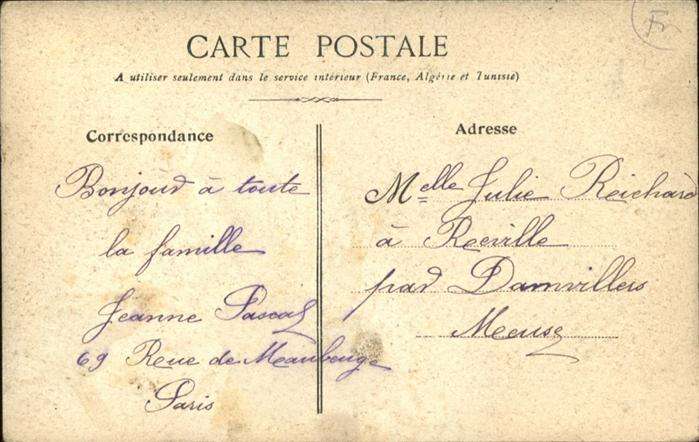 F
CARTE POSTALE
A utiliser seulement dans le service intérieur (France, Algérie et Tunisie)
Correspondance
Bonjour à toute
la famille
Jeanne Pascal
69 Rue de Maubeuge
Paris
Adresse
Melle Julie Reichard
à Reville
par Damvillers
Meuse